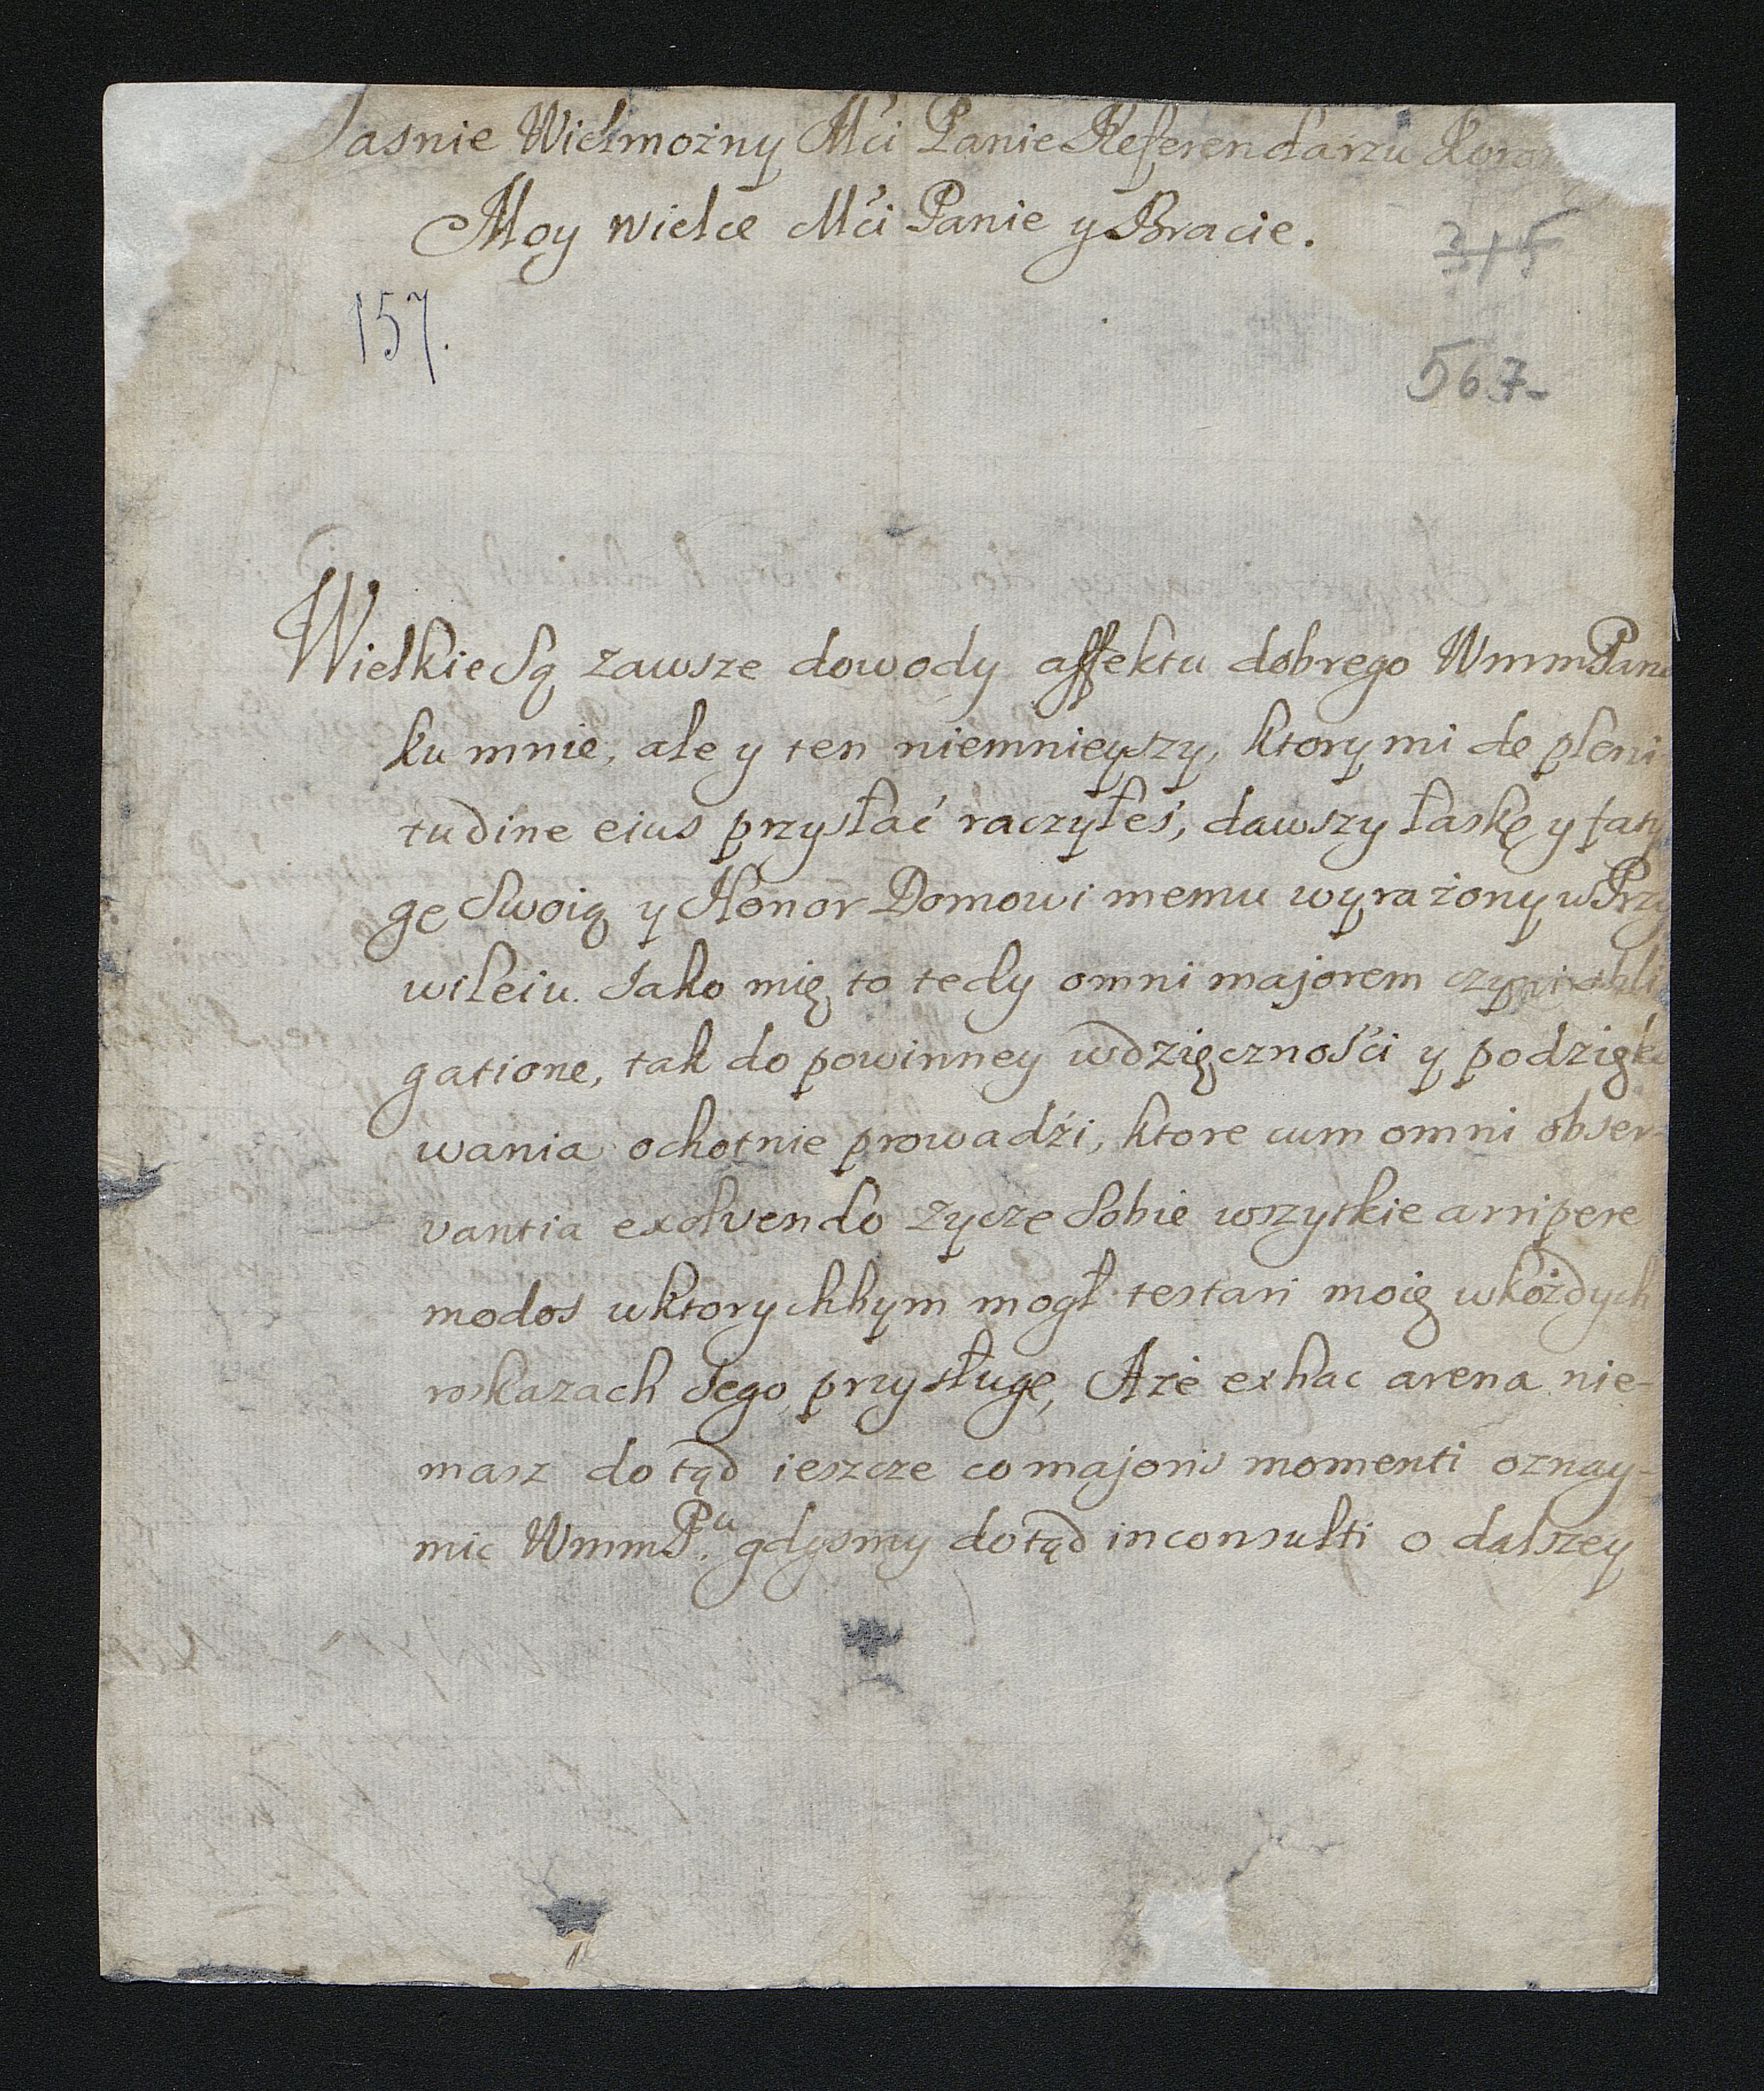 Jasnie Wielmożny Mći Panie Referendarzu Koron
Moy wielce Mći Panie y Bracie.
315
157.
567-
Wielkie Są zawsze dowody affektu dobrego WmmPana
ku mnie, ale y ten niemnieyszy, ktory mi de pleni
tudine eius przysłać raczyłeś, dawszy łaskę y faty
gę Swoię y Honor Domowi memu wyrażony w Przy
wileiu. Jako mię to tedy omni majorem czyni obli
gatione, tak do powinney wdzięcznośći y podzięko
wania ochotnie prowadźi, ktore cum omni obser-
vantia exolvendo życzę Sobie wszytkie arripere
modos w ktorychbym mogł testari moię w każdych
roskazach Jego przysługę, Aże ex hac arena nie-
masz do tąd ieszcze co majoris momenti oznay-
mić WmmP.u gdysmy dotąd inconsulti o dalszey